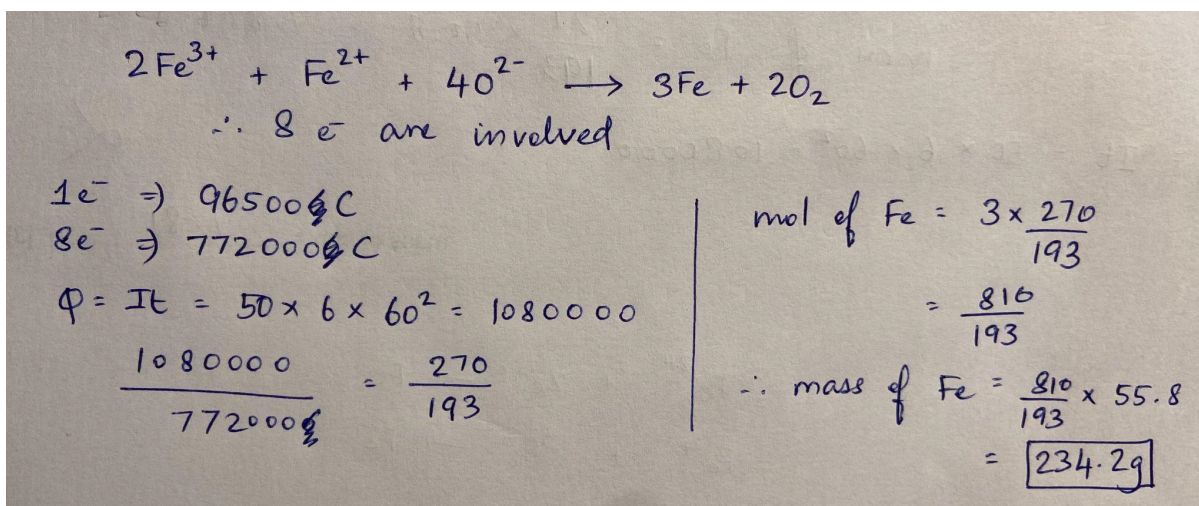 2Fe³⁺ + Fe²⁺ + 4O²⁻ → 3Fe + 2O₂
∴ 8 e⁻ are involved
1e⁻ ⇒ 96500 C
8e⁻ ⇒ 772000 C
Q = It = 50 × 6 × 60² = 1080000
1080000 / 772000 = 270 / 193
mol of Fe = 3 × 270 / 193
= 810 / 193
∴ mass of Fe = 810 / 193 × 55.8
= 234.2g